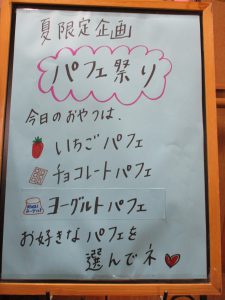 夏限定企画
パフェ祭り
今日のおやつは、
いちごパフェ
チョコレートパフェ
ヨーグルトパフェ
お好きなパフェを
選んでネ